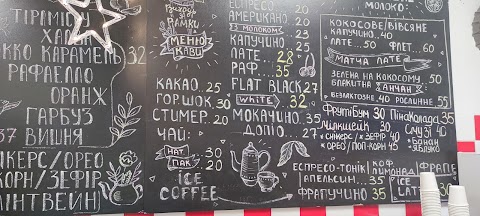 ТІРАМІСУ
ХАЛВА
ОККО КАРАМЕЛЬ 32
РАФАЕЛЛО
ОРАНЖ
ГАРБУЗ
37 ВИШНЯ
НІКЕРС/ОРЕО
КОРН/ЗЕФІР
ЛІНТВЕЙН)
РАМКИ
МЕНЮ
КАВИ
КАКАО. 25
ГОР.ШОК. 30
СТИМЕР. 20
ЧАЙ:
НАТ 30
ПАК 20
ICE
COFFEE
ЕСПРЕСО 20
АМЕРИКАНО 20
З МОЛОКОМ
КАПУЧИНО 25
ЛАТЕ 28
РАФ 35
FLAT BLACK 27
WHITE 32
МОКАЧИНО 35
ДОПІО 27
ЕСПРЕСО-ТОНІК
АПЕЛЬСИН 35
ФРАПУЧИНО 35
МОЛОКО:
КОКОСОВЕ/ВІВСЯНЕ
КАПУЧИНО 40
ЛАТЕ 50 ФЛЕТ 60
МАТЧА ЛАТЕ
ЗЕЛЕНА НА КОКОСОМУ 50
БЛАКИТНА
БЕЗЛАКТОЗНЕ 40 РОСЛИННЕ 55
ФРУТІБУМ 30 ПІНАКОЛАДА 35
МІЛКШЕЙК 30 СМУЗІ 45
СНІКЕРС /ЗЕФІР 40 БАНАН
ОРЕО/ПОП-КОРН 45 ЯБЛУКО
КОФ
ЛИМОНАД
35
ФРАПЕ
ICE
LATE